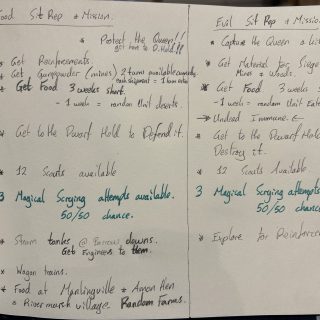 Good Sit Rep & Mission.
* Protect the Queen!!
get her to D.Hold!!
* Get Reinforcements.
* Get Gunpowder (mines) 2 turns available currently
each shipment = 1 turn
* Get Food 3 weeks short.
- 1 week = random Unit deserts.
* Get to the Dwarf Hold to Defend it.
* 12 Scouts available
3 Magical Scrying attempts available.
50/50 chance.
* Steam tanks @ downs.
Get Engineers to them.
* Wagon trains.
* Food at & Amon Hen
& Rivermarsh village. Random Farms.
Evil Sit Rep & Mission
* Capture the Queen
* Get Material for Siege
Mines & Woods.
* Get Food 3 weeks
- 1 week = random Unit Eate
→ Undead Immune. ←
* Get to the Dwarf Hold
Destroy it.
* 12 Scouts Available
3 Magical Scrying attempts
50/50 chance.
* Explore for Reinforce